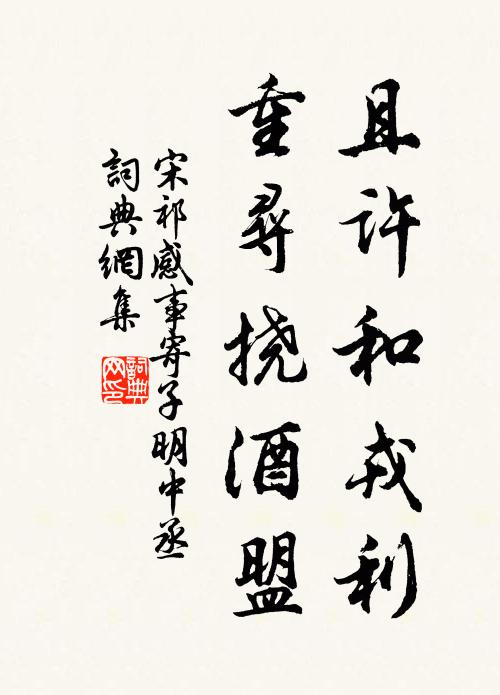 且许和戎利
重寻挠酒盟
宋祁感事寄子明中丞
詞典網集
詞典网印